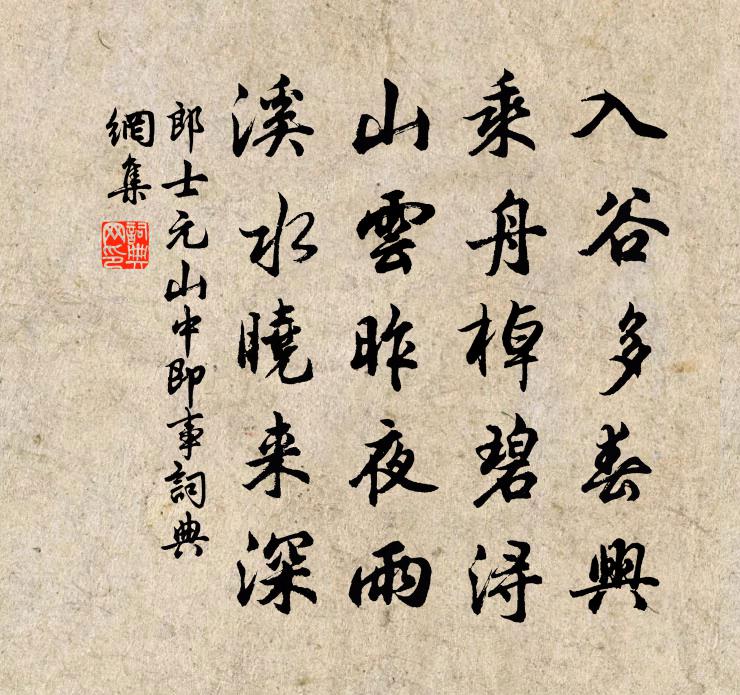 入谷多春興
乘舟棹碧潯
山雲昨夜雨
溪水曉来深
郎士元山中即事詞典
網集
詞典網印